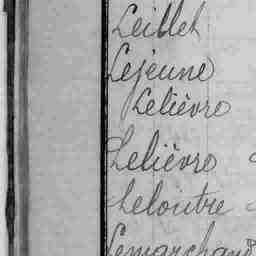 Leillet
Lejeune
Lelièvre
Lelièvre
Leloutre
Lemarchand